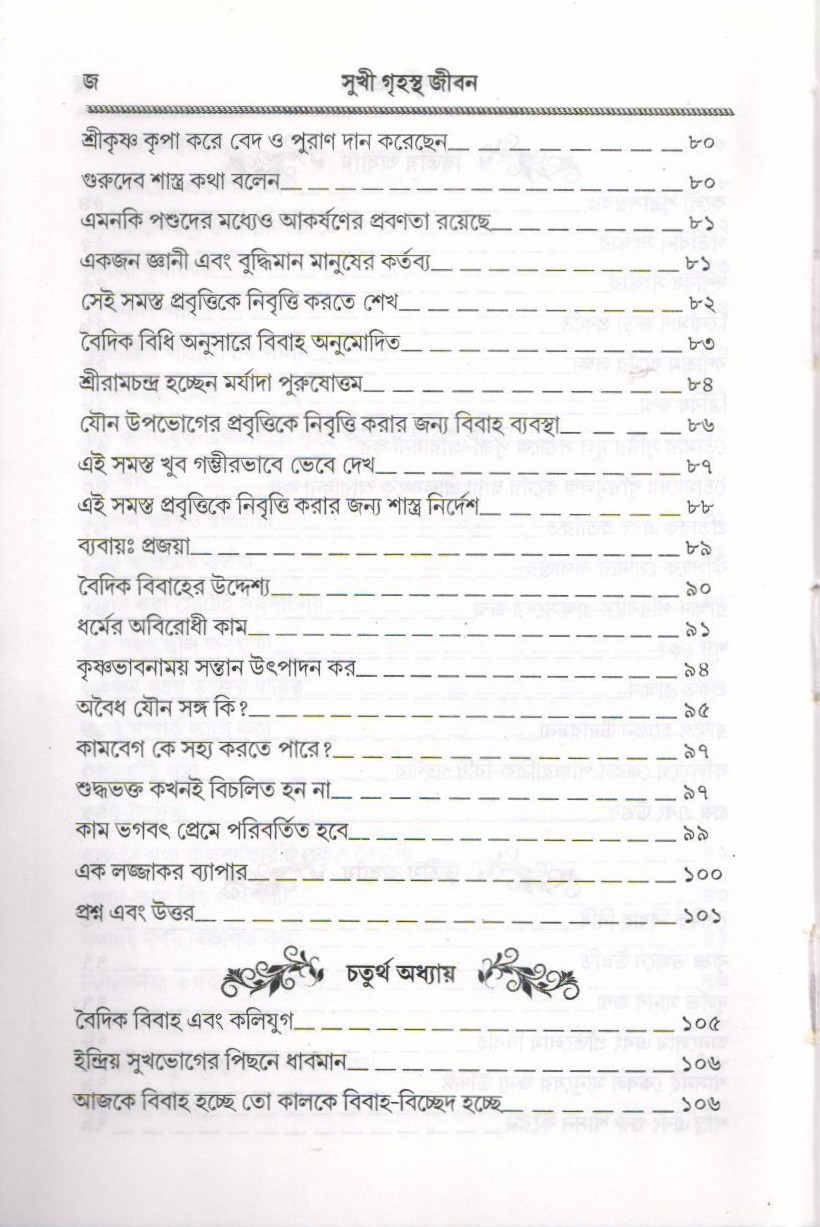 জ সুখী গৃহস্থ জীবন
শ্রীকৃষ্ণ কৃপা করে বেদ ও পুরাণ দান করেছেন ৮০
গুরুদেব শাস্ত্র কথা বলেন ৮০
এমনকি পশুদের মধ্যেও আকর্ষণের প্রবণতা রয়েছে ৮১
একজন জ্ঞানী এবং বুদ্ধিমান মানুষের কর্তব্য ৮১
সেই সমস্ত প্রবৃত্তিকে নিবৃত্তি করতে শেখ ৮২
বৈদিক বিধি অনুসারে বিবাহ অনুমোদিত ৮৩
শ্রীরামচন্দ্র হচ্ছেন মর্যাদা পুরুষোত্তম ৮৪
যৌন উপভোগের প্রবৃত্তিকে নিবৃত্তি করার জন্য বিবাহ ব্যবস্থা ৮৬
এই সমস্ত খুব গম্ভীরভাবে ভেবে দেখ ৮৭
এই সমস্ত প্রবৃত্তিকে নিবৃত্তি করার জন্য শাস্ত্র নির্দেশ ৮৮
ব্যবায়ঃ প্রজয়া ৮৯
বৈদিক বিবাহের উদ্দেশ্য ৯০
ধর্মের অবিরোধী কাম ৯১
কৃষ্ণভাবনাময় সন্তান উৎপাদন কর ৯৪
অবৈধ যৌন সঙ্গ কি? ৯৫
কামবেগ কে সহ্য করতে পারে? ৯৭
শুদ্ধভক্ত কখনই বিচলিত হন না ৯৭
কাম ভগবৎ প্রেমে পরিবর্তিত হবে ৯৯
এক লজ্জাকর ব্যাপার ১০০
প্রশ্ন এবং উত্তর ১০১
চতুর্থ অধ্যায়
বৈদিক বিবাহ এবং কলিযুগ ১০৫
ইন্দ্রিয় সুখভোগের পিছনে ধাবমান ১০৬
আজকে বিবাহ হচ্ছে তো কালকে বিবাহ-বিচ্ছেদ হচ্ছে ১০৬